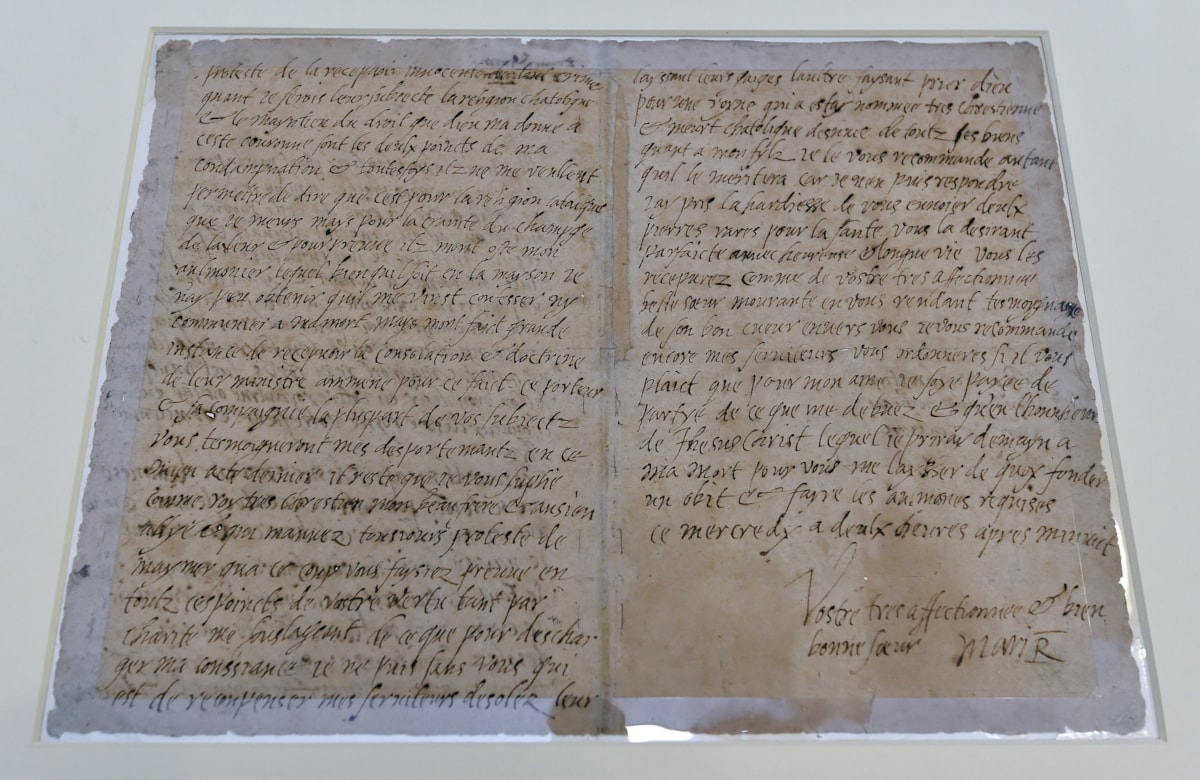 proteste de la recepvoir innocente de tout crime
quant je serois leur subjecte la religion chatolique
& le mayntien du droit que dieu ma donne a
ceste couronne sont les deulx poincts de ma
condampnation & toutesfoys ilz ne me veulent
permettre de dire que cest pour la religion catolique
que je meurs mays pour la crainte du champge
de la leur & pour preuve ilz mont oste mon
aulmonier lequel bien quil soit en la mayson je
nay peu obtenir quil me vinst confesser ny
communier a ma mort mays mont faict grande
instance de recepvoir la consolation & doctrine
de leur ministre ammene pour ce faict ce porteur
& sa compaignie la pluspart de vos subjectz
vous tesmoigneront mes desportemantz en ce
mien acte dernier il reste que je vous suplie
comme roy tres chrestien mon beaufrere & ansien
allye & qui mavvez tousjours proteste de
maymer qua ce coup vous faysiez preuve en
toutz ces poincts de vostre vertu tant par
charite me soulageant de ce que pour deschar
ger ma conssiance je ne puis sans vous qui
est de recompenser mes serviteurs desolez leur
layssant leurs gaiges laultre faysant prier dieu
pour une royne qui a estay nommee tres chrestienne
& meurt chatolique desnuee de toutz ses biens
quant a mon filz je le vous recommande autant
quil le meritera car je nen puis respondre
jay pris la hardiesse de vous envoier deulx
pierres rares pour la sante vous la desirant
parfaicte avvec heureuse & longue vie vous les
recepvrez comme de vostre tres affectionnee
belle sœur mourante en vous rendant tesmoygnage
de son bon cueur envers vous je vous recommande
encore mes serviteurs vous ordonneres si il vous
plaict que pour mon ame je soye payee de
partye de ce que me debvez & quen lhonneur
de Jhesus Christ lequel je priray demayn a
ma mort pour vous me laysser de quoy fonder
un obit & fayre les aulmones requises
ce mercredy a deulx heures apres minuit
Vostre tres affectionnee & bien
bonne sœur Mari R